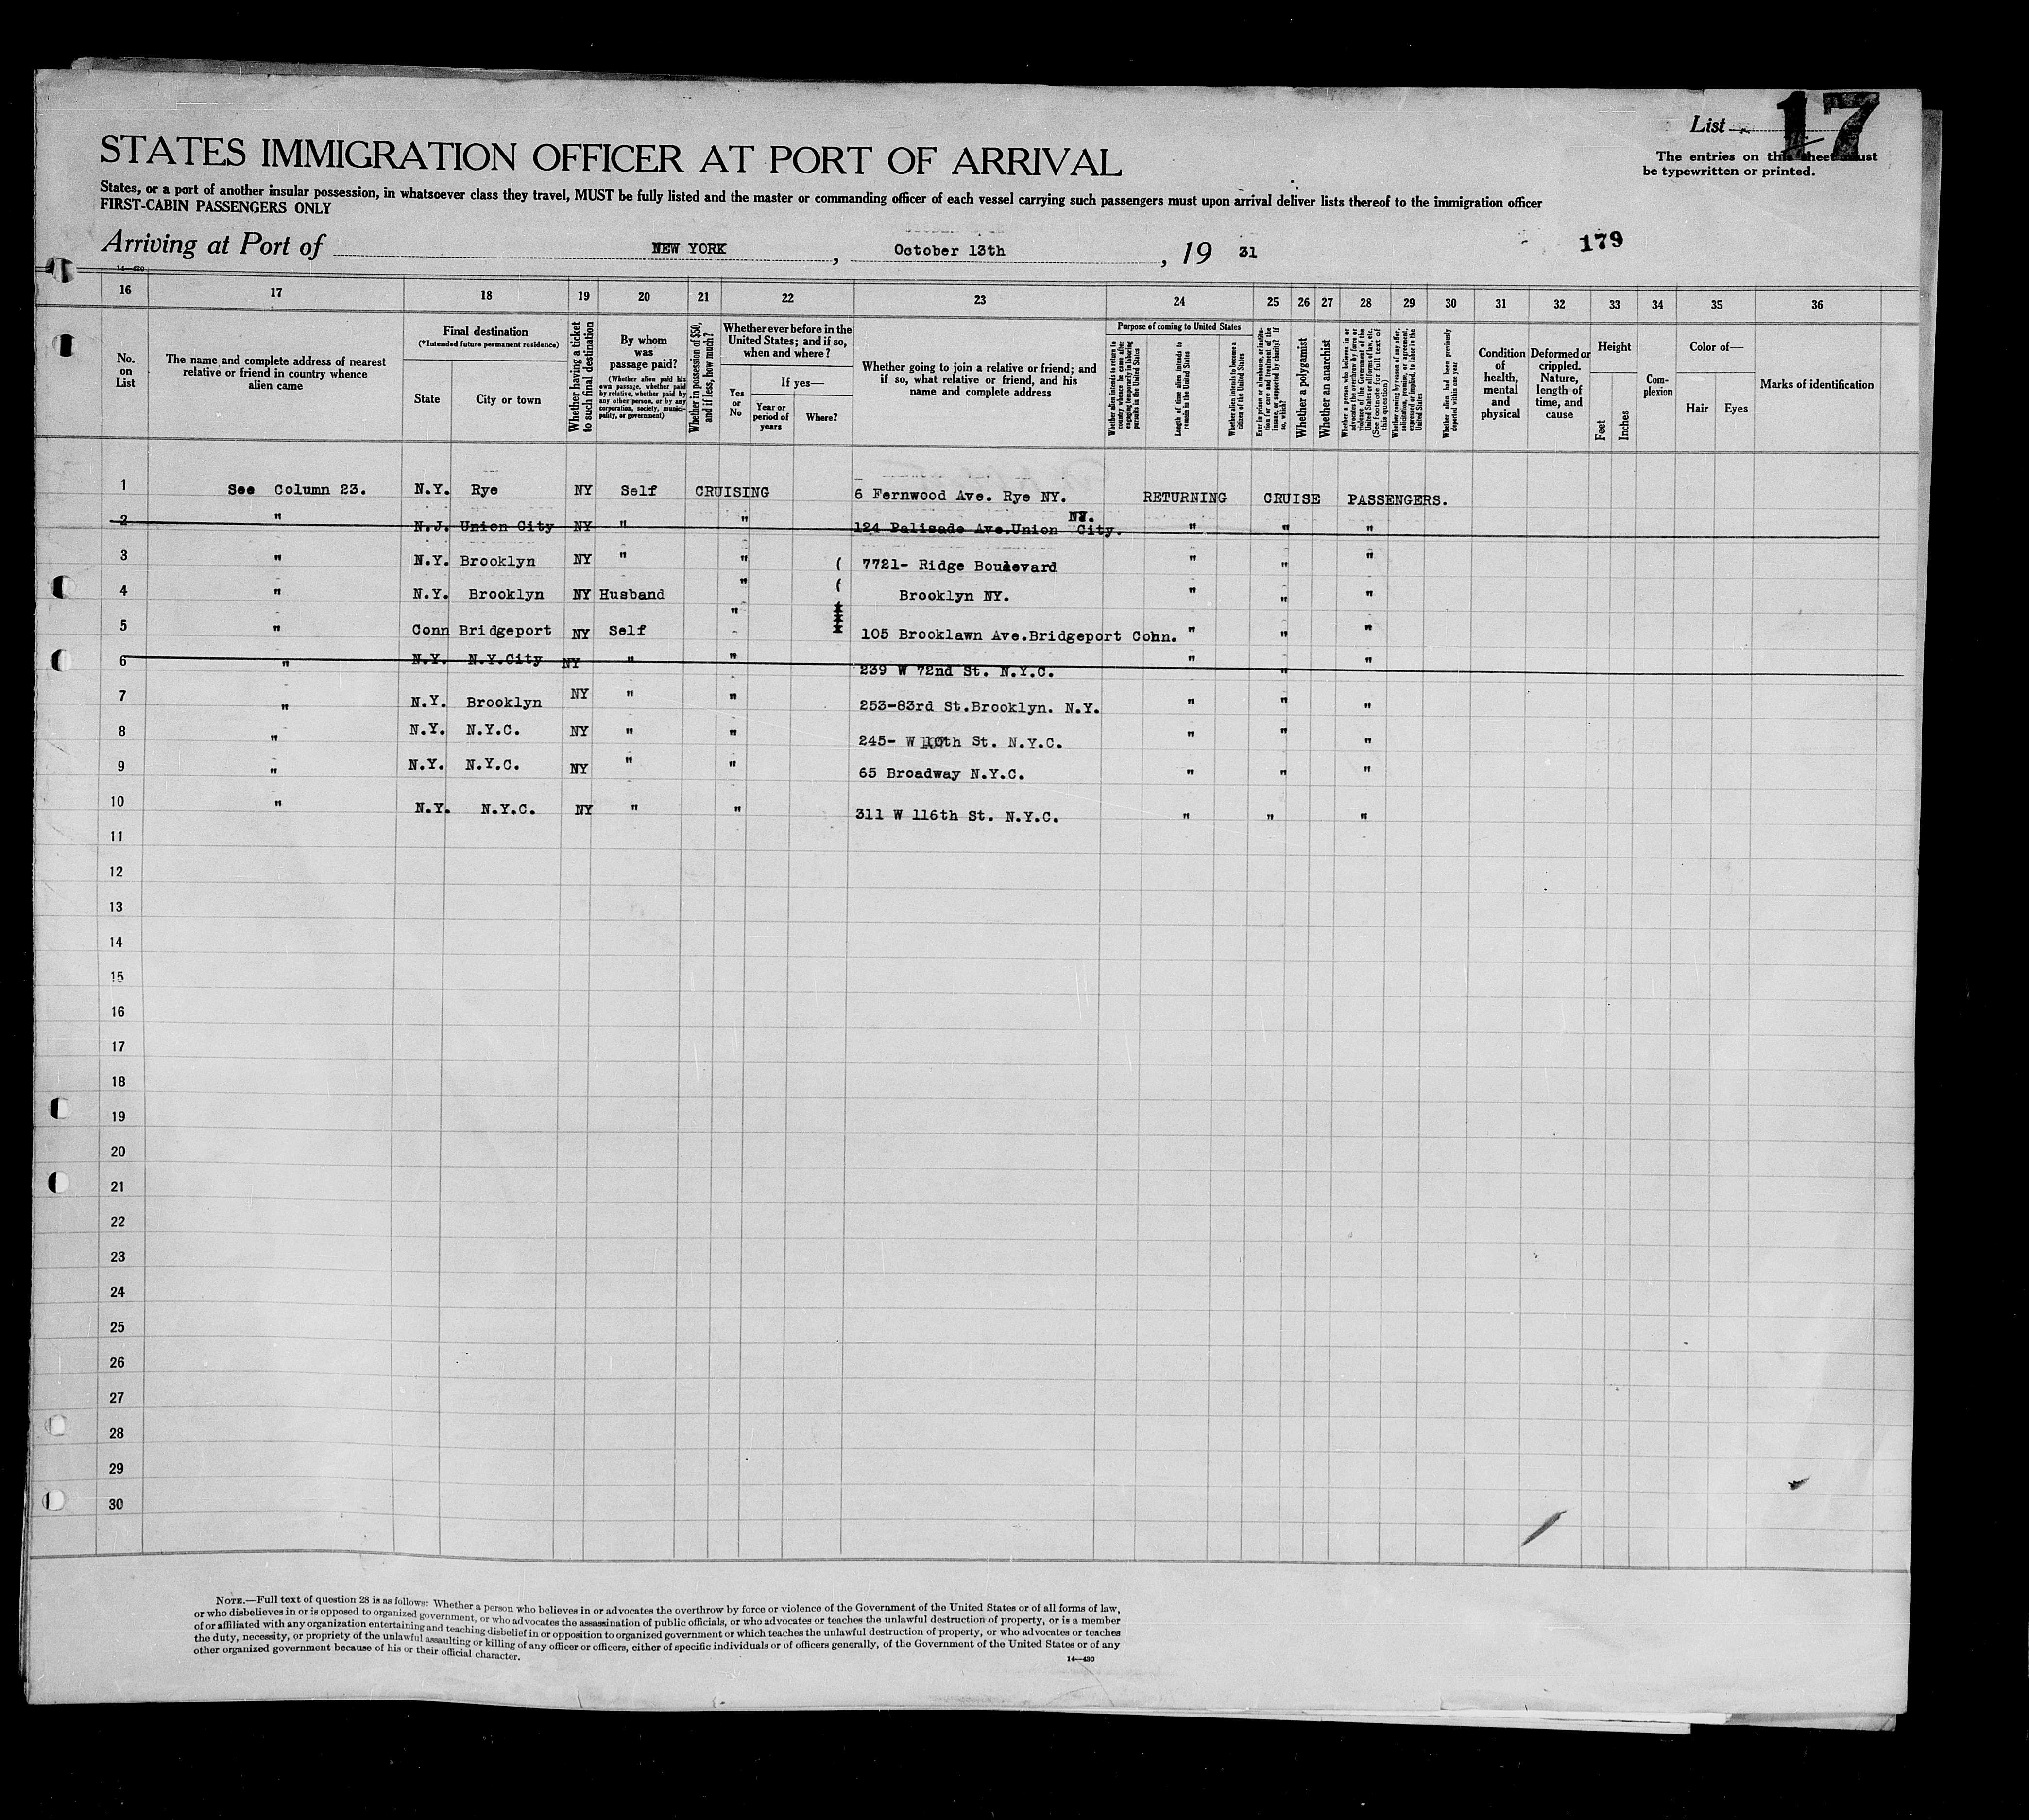 List 17
The entries on this sheet must
be typewritten or printed.
STATES IMMIGRATION OFFICER AT PORT OF ARRIVAL
States, or a port of another insular possession, in whatsoever class they travel, MUST be fully listed and the master or commanding officer of each vessel carrying such passengers must upon arrival deliver lists thereof to the immigration officer
FIRST-CABIN PASSENGERS ONLY
Arriving at Port of NEW YORK, October 13th, 19 31
179
14—430
16 17 18 19 20 21 22 23 24 25 26 27 28 29 30 31 32 33 34 35 36
No. on List
The name and complete address of nearest relative or friend in country whence alien came
Final destination
(*Intended future permanent residence)
State
City or town
Whether having a ticket to such final destination
By whom was passage paid?
(Whether alien paid his own passage, whether paid by relative, whether paid by any other person, or by any corporation, society, municipality, or government)
Whether in possession of $50, and if less, how much?
Whether ever before in the United States; and if so, when and where?
Yes or No
If yes—
Year or period of years
Where?
Whether going to join a relative or friend; and if so, what relative or friend, and his name and complete address
Purpose of coming to United States
Whether alien intends to return to country whence he came after engaging temporarily in laboring pursuits in the United States
Length of time alien intends to remain in the United States
Whether alien intends to become a citizen of the United States
Ever in prison or almshouse, or institution for care and treatment of the insane, or supported by charity? If so, which?
Whether a polygamist
Whether an anarchist
Whether a person who believes in or advocates the overthrow by force or violence of the Government of the United States or all forms of law, etc. (See footnote for full text of this question)
Whether coming by reason of any offer, solicitation, promise, or agreement, expressed or implied, to labor in the United States
Whether alien had been previously deported within one year
Condition of health, mental and physical
Deformed or crippled. Nature, length of time, and cause
Height
Feet
Inches
Complexion
Color of—
Hair
Eyes
Marks of identification
1 See Column 23. N.Y. Rye NY Self CRUISING 6 Fernwood Ave. Rye NY. RETURNING CRUISE PASSENGERS.
2 " N.J. Union City NY " " 124 Palisade Ave.Union City. NY. " " "
3 " N.Y. Brooklyn NY " " ( 7721- Ridge Boulevard " " "
4 " N.Y. Brooklyn NY Husband " ( Brooklyn NY. " " "
5 " Conn Bridgeport NY Self " 105 Brooklawn Ave.Bridgeport Conn. " " "
6 " N.Y. N.Y.City NY " " 239 W 72nd St. N.Y.C. " " "
7 " N.Y. Brooklyn NY " " 253-83rd St.Brooklyn. N.Y. " " "
8 " N.Y. N.Y.C. NY " " 245- W St. N.Y.C. " " "
9 " N.Y. N.Y.C. NY " " 65 Broadway N.Y.C. " " "
10 " N.Y. N.Y.C. NY " " 311 W 116th St. N.Y.C. " " "
11
12
13
14
15
16
17
18
19
20
21
22
23
24
25
26
27
28
29
30
NOTE.—Full text of question 28 is as follows: Whether a person who believes in or advocates the overthrow by force or violence of the Government of the United States or of all forms of law,
or who disbelieves in or is opposed to organized government, or who advocates the assassination of public officials, or who advocates or teaches the unlawful destruction of property, or is a member
of or affiliated with any organization entertaining and teaching disbelief in or opposition to organized government or which teaches the unlawful destruction of property, or who advocates or teaches
the duty, necessity, or propriety of the unlawful assaulting or killing of any officer or officers, either of specific individuals or of officers generally, of the Government of the United States or of any
other organized government because of his or their official character.
14—430